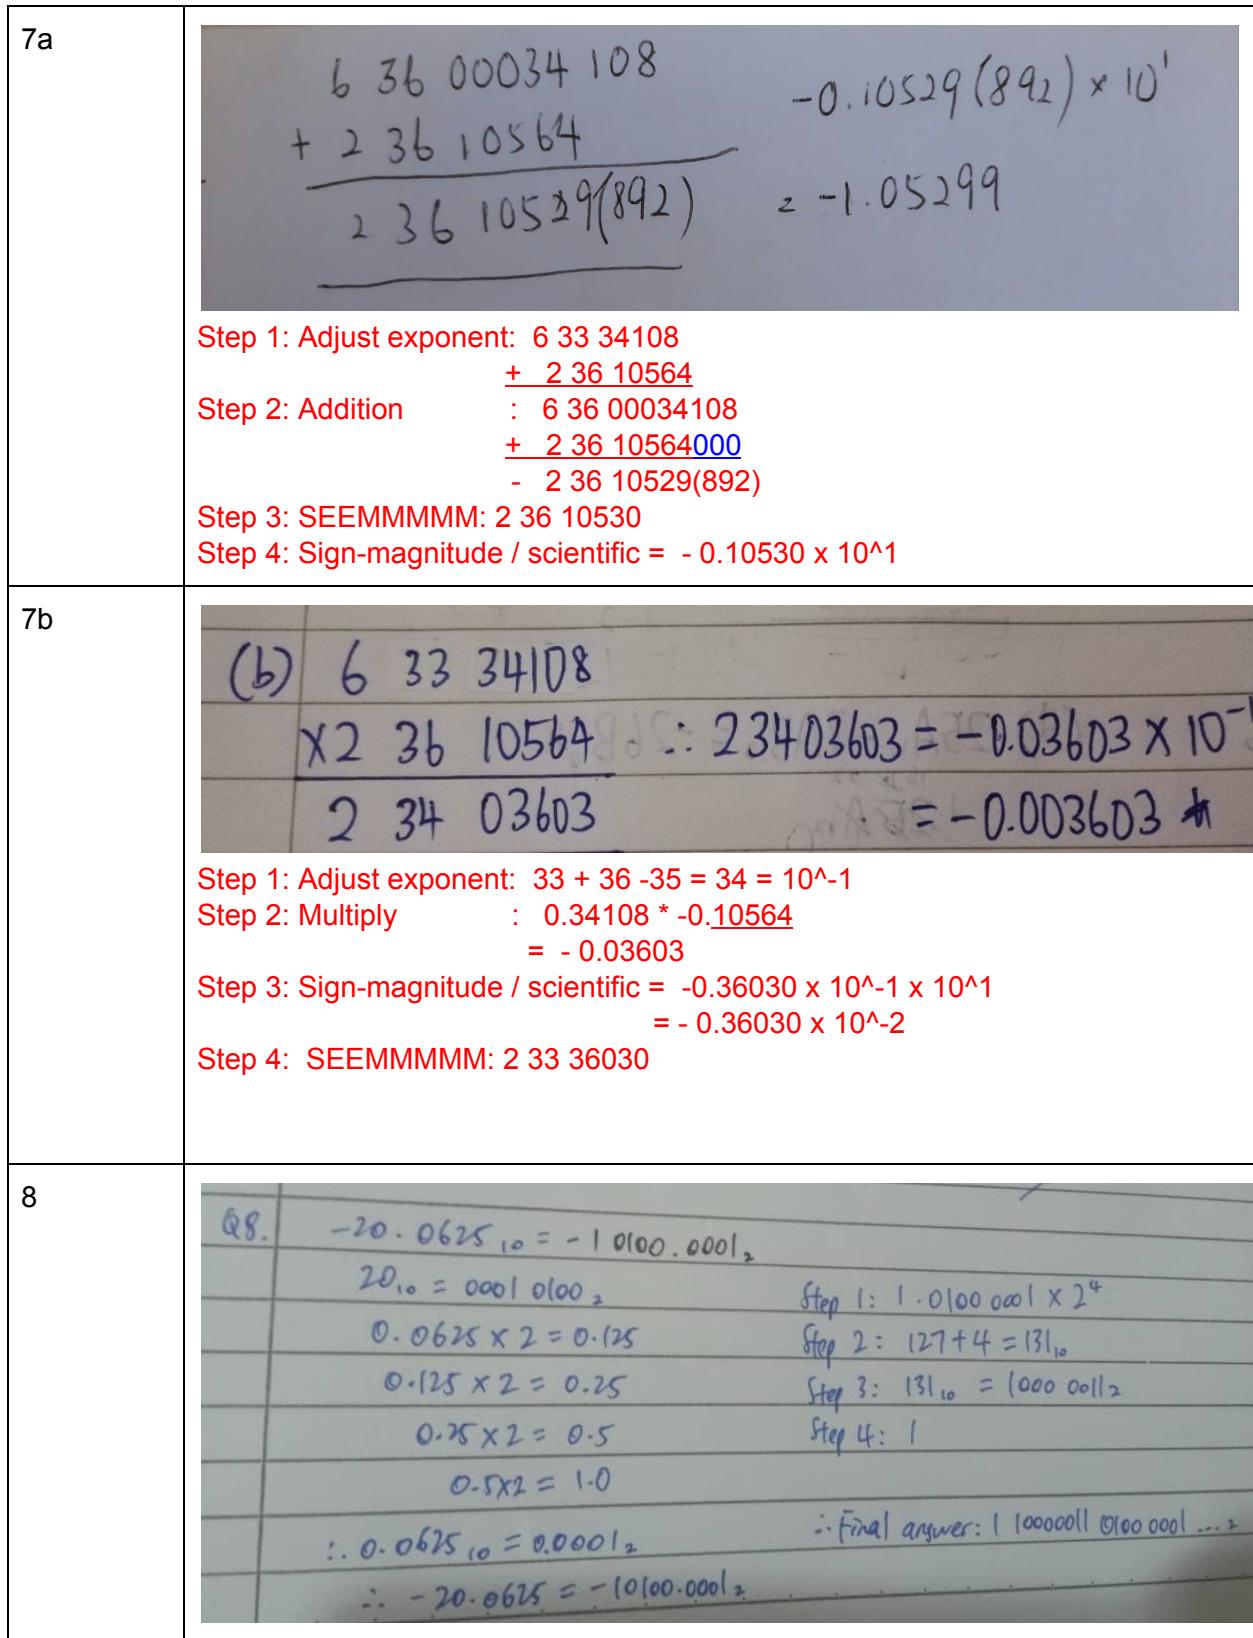 7a
6 36 00034 108
+ 2 36 10564
2 36 10529(892)
-0.10529(892) × 10¹
= -1.05299
Step 1: Adjust exponent: 6 33 34108
+ 2 36 10564
Step 2: Addition : 6 36 00034108
+ 2 36 10564000
- 2 36 10529(892)
Step 3: SEEMMMMM: 2 36 10530
Step 4: Sign-magnitude / scientific = - 0.10530 x 10^1
7b
(b) 6 33 34108
×2 36 10564 ∴ 23403603 = -0.03603 × 10⁻¹
2 34 03603 = -0.003603
Step 1: Adjust exponent: 33 + 36 -35 = 34 = 10^-1
Step 2: Multiply : 0.34108 * -0.10564
= - 0.03603
Step 3: Sign-magnitude / scientific = -0.36030 x 10^-1 x 10^1
= - 0.36030 x 10^-2
Step 4: SEEMMMMM: 2 33 36030
8
Q8. -20.0625₁₀ = -10100.0001₂
20₁₀ = 0001 0100₂
0.0625 × 2 = 0.125
0.125 × 2 = 0.25
0.25 × 2 = 0.5
0.5×2 = 1.0
∴ 0.0625₁₀ = 0.0001₂
∴ -20.0625 = -10100.0001₂
Step 1: 1.0100 0001 × 2⁴
Step 2: 127+4 = 131₁₀
Step 3: 131₁₀ = 1000 0011₂
Step 4: 1
∴ Final answer: 1 10000011 0100 0001 ...₂